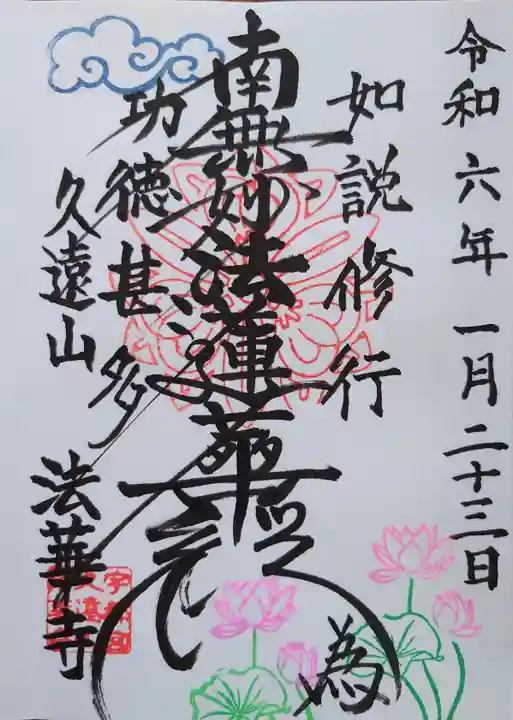 令和六年 一月二十三日
如説修行
南無妙法蓮華経
為
功徳甚多
久遠山
法華寺